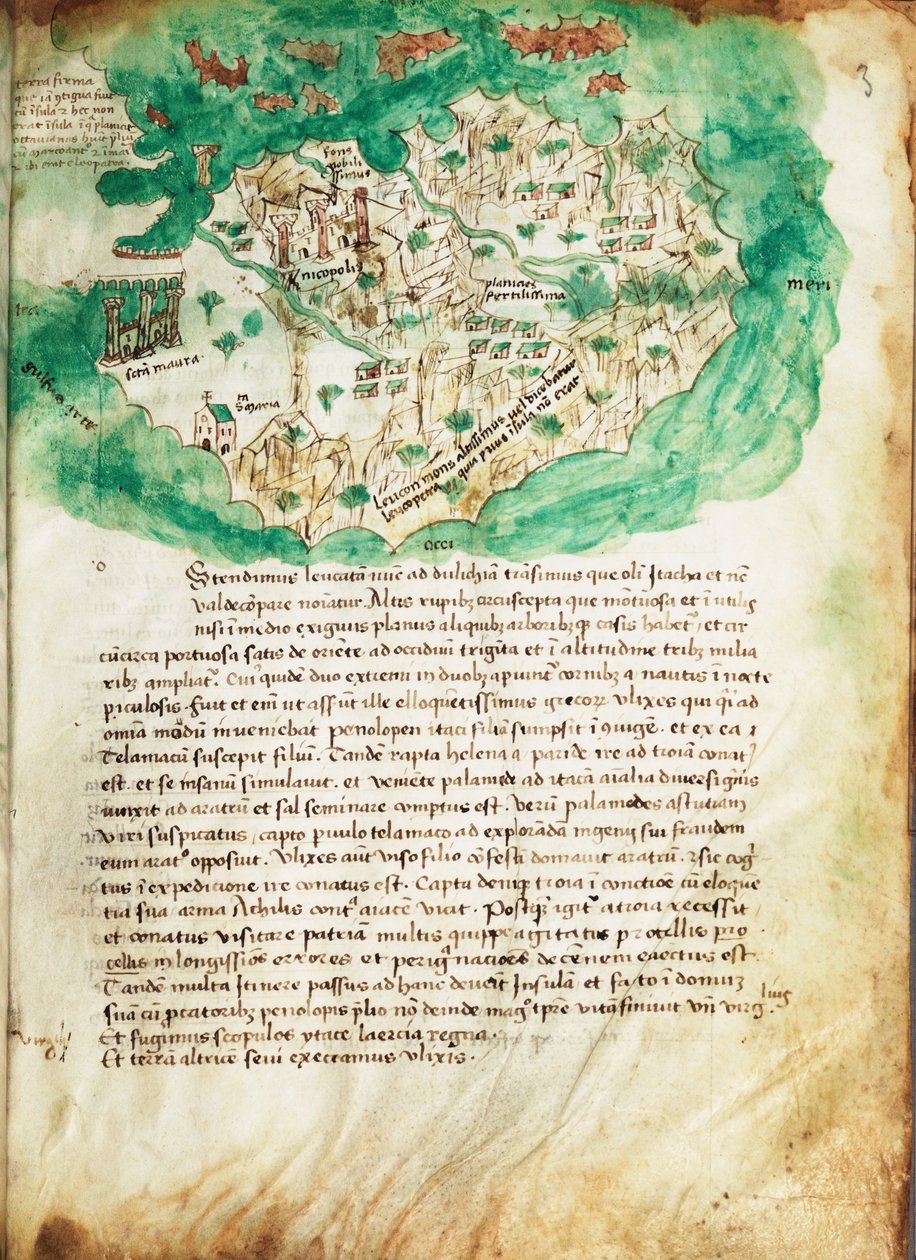 3
terra firma
que iā ꝯtigua fuit
cū īsula ⁊ hec non
erat īsula ī q̄ planicie
octavianus huit p̄liū
cū marco ant° ⁊ imāi
⁊ ibi erat cleopatra.
fons
nobili
ssimus
nicopolis
planicies
fertilissima
meri
sctā maura
gulfus
ta
S maria
Leucon mons altissimus vel dicebatur
leucopetra quia primo īsula nō erat
occi
o
Stendimus leucatā nūc ad dulichiā trāsimus que oli Itacha et nc̄
valdecōpare noīatur. Altis rupibꝫ circuscepta que mōtuosa et ī utilis
nisi ī medio exiguis planus aliquibꝫ arboribꝫqꝫ casis habet̄, et cir
cūcirca portuosa satis de oriēte ad occiduū trigīta et ī altitudine tribꝫ milia
ribꝫ ampliat̄. Cui⁹ quidē duo extremi in duobꝫ apiunt̄ cornibꝫ a nautis ī nocte
p̱iculosis. fuit et eni ut assūt ille elloquētissimus grecoꝝ vlixes qui q̄i ad
omīa modūm inveniebat penolopen itaci filiā sumpsit ī ꝯiuge. et ex ea
Telamacū suscepit filiū. Tandē rapta helena a paride ire ad troiā conat⁹
est. et se insanū simulavit. et veniēte palamede ad itacā aīalia diversi gn̄is
iunxit ad aratrū et sal seminare comptus est. verū palamedes astutiam
viri suspicatus, capto p̱vulo telamaco ad explorādā ingenii sui fraudem
eum arat° opposiut. vlixes aūt viso filio cōfestī domavit aratrū. ⁊ sic coḡ
tus ī expedicione ire conatus est. Capta deniqꝫ troia ī conctioē cū eloque
tia sua arma Achilis cont̄ aiacē vicit. Postqꝫ igit̄ a troia recessit
et conatus visitare patriā multis quippe agitatus procellis pro
cellis in longissios errores et perigrinaciōes decēnem eaectus est.
Tandē multa Itinere passus ad hanc devēit Insulā et facto ī domuꝫ
suā cū p̱catoribꝫ penolopis p̄lio nō deinde mag° tp̄re vitā finiuit Vn̄ virg
lius
Et fugimus scopulos ytace laercia regna.
Et terrā altricē sevi execcamus vlixis.